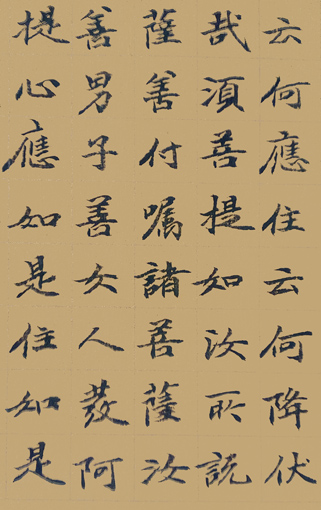 云何應住云何降伏
哉須菩提如汝所說
薩善付嘱諸菩薩汝
善男子善女人發阿
提心應如是住如是